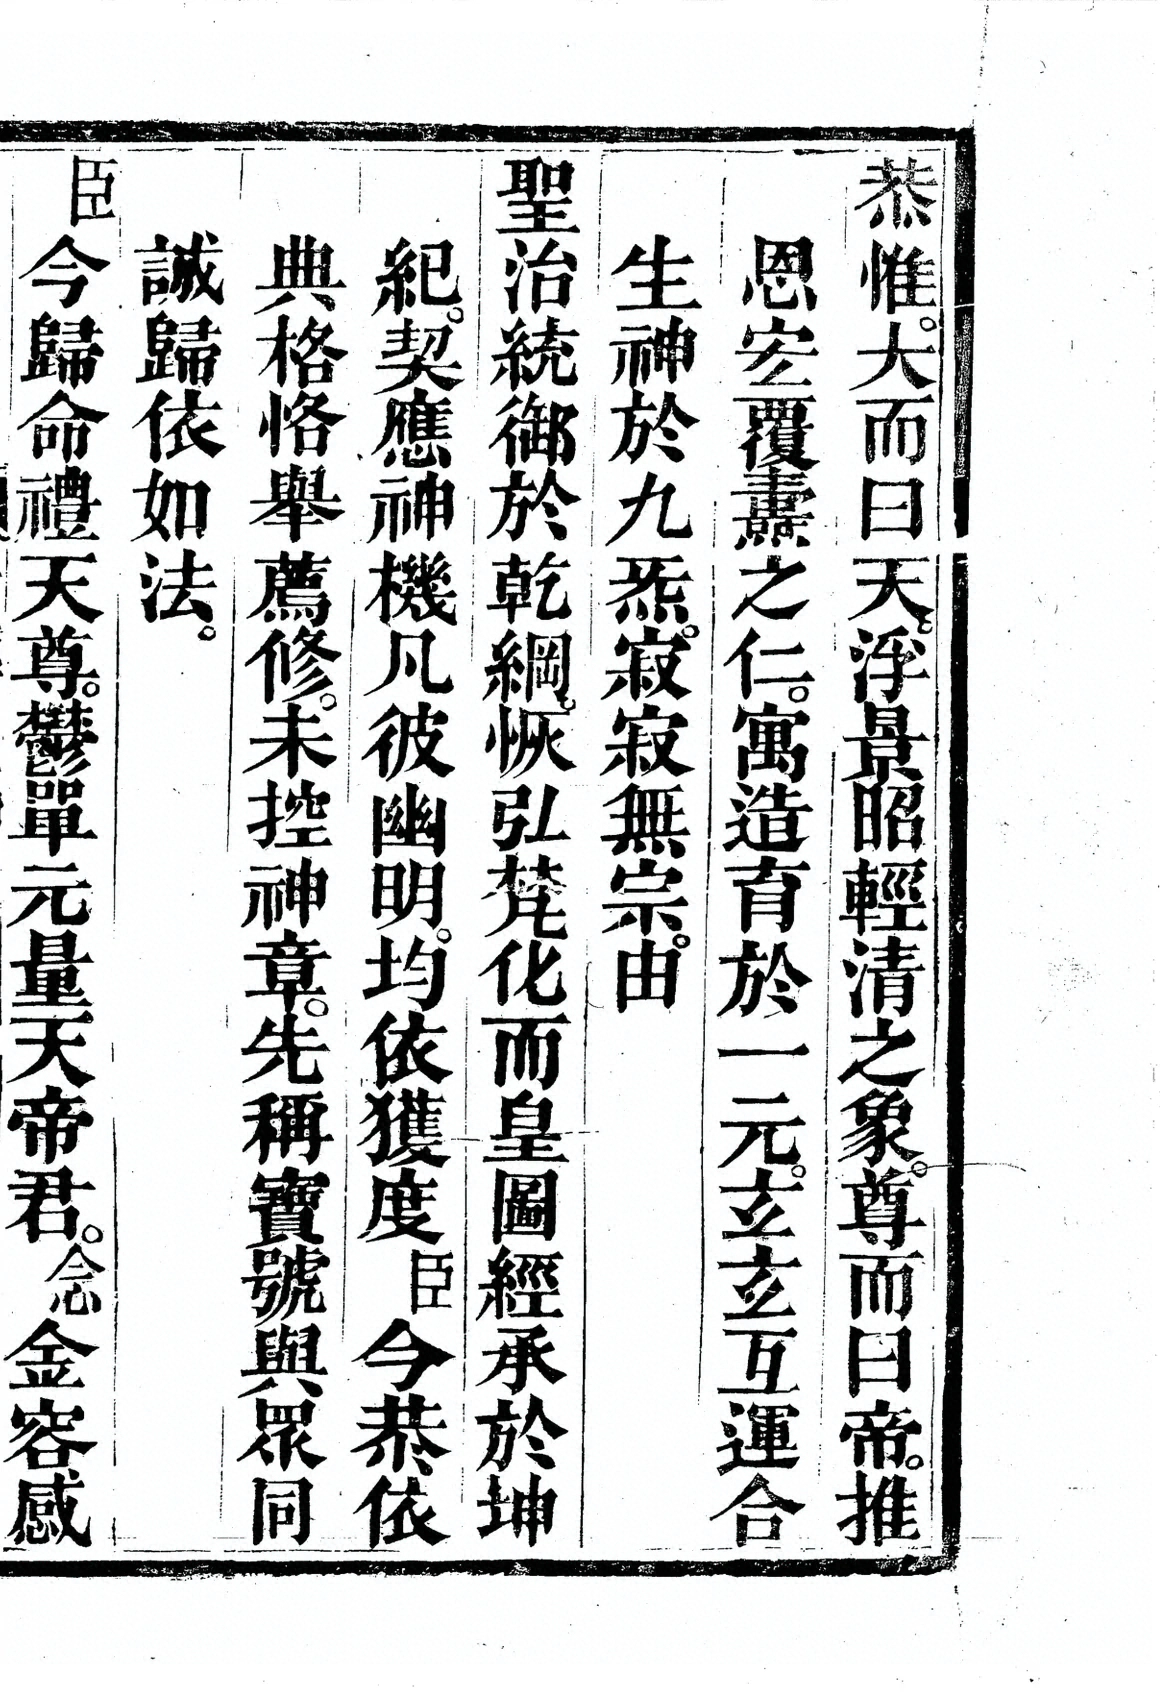 恭惟。大而曰天。浮景昭輕清之象。尊而曰帝。推
恩宏覆燾之仁。寓造育於一元。玄玄互運合
生神於九炁。寂寂無宗。由
聖治統御於乾綱。恢弘梵化而皇圖經承於坤
紀。契應神機凡彼幽明。均依獲度臣今恭依
典格恪舉薦修。未控神章。先稱寶號與眾同
誠歸依如法。
臣今歸命禮天尊。鬱單元量天帝君。念金容感